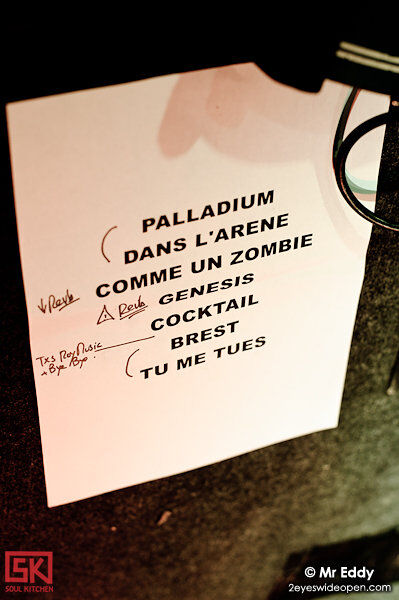 PALLADIUM
DANS L'ARENE
COMME UN ZOMBIE
↓ Revb
⚠ Revb GENESIS
COCKTAIL
Txs Roy Music
+ Bye Bye.
BREST
TU ME TUES
SK
SOUL KITCHEN
© Mr Eddy
2eyeswideopen.com